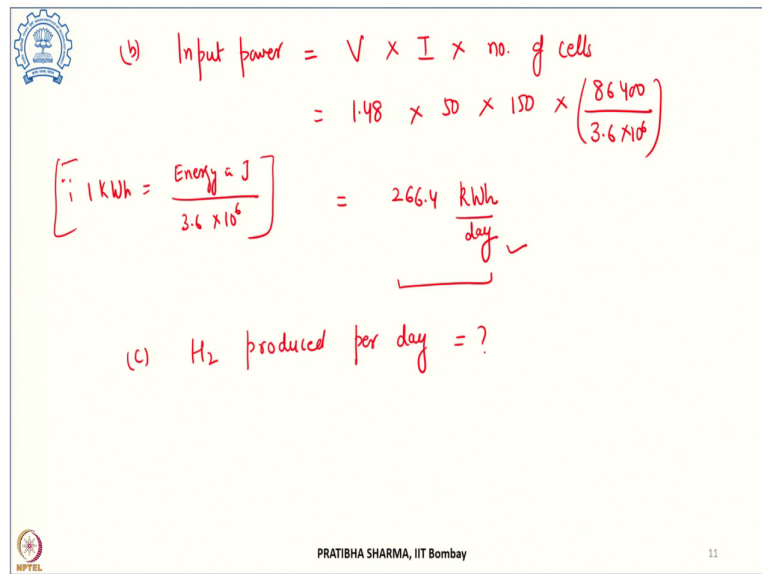 (b) Input power = V × I × no. of cells
= 1.48 × 50 × 150 × (86400 / 3.6 × 10⁶)
[∵ 1 kWh = Energy in J / 3.6 × 10⁶] = 266.4 kWh / day ✓
(c) H₂ produced per day = ?
NPTEL
PRATIBHA SHARMA, IIT Bombay
11